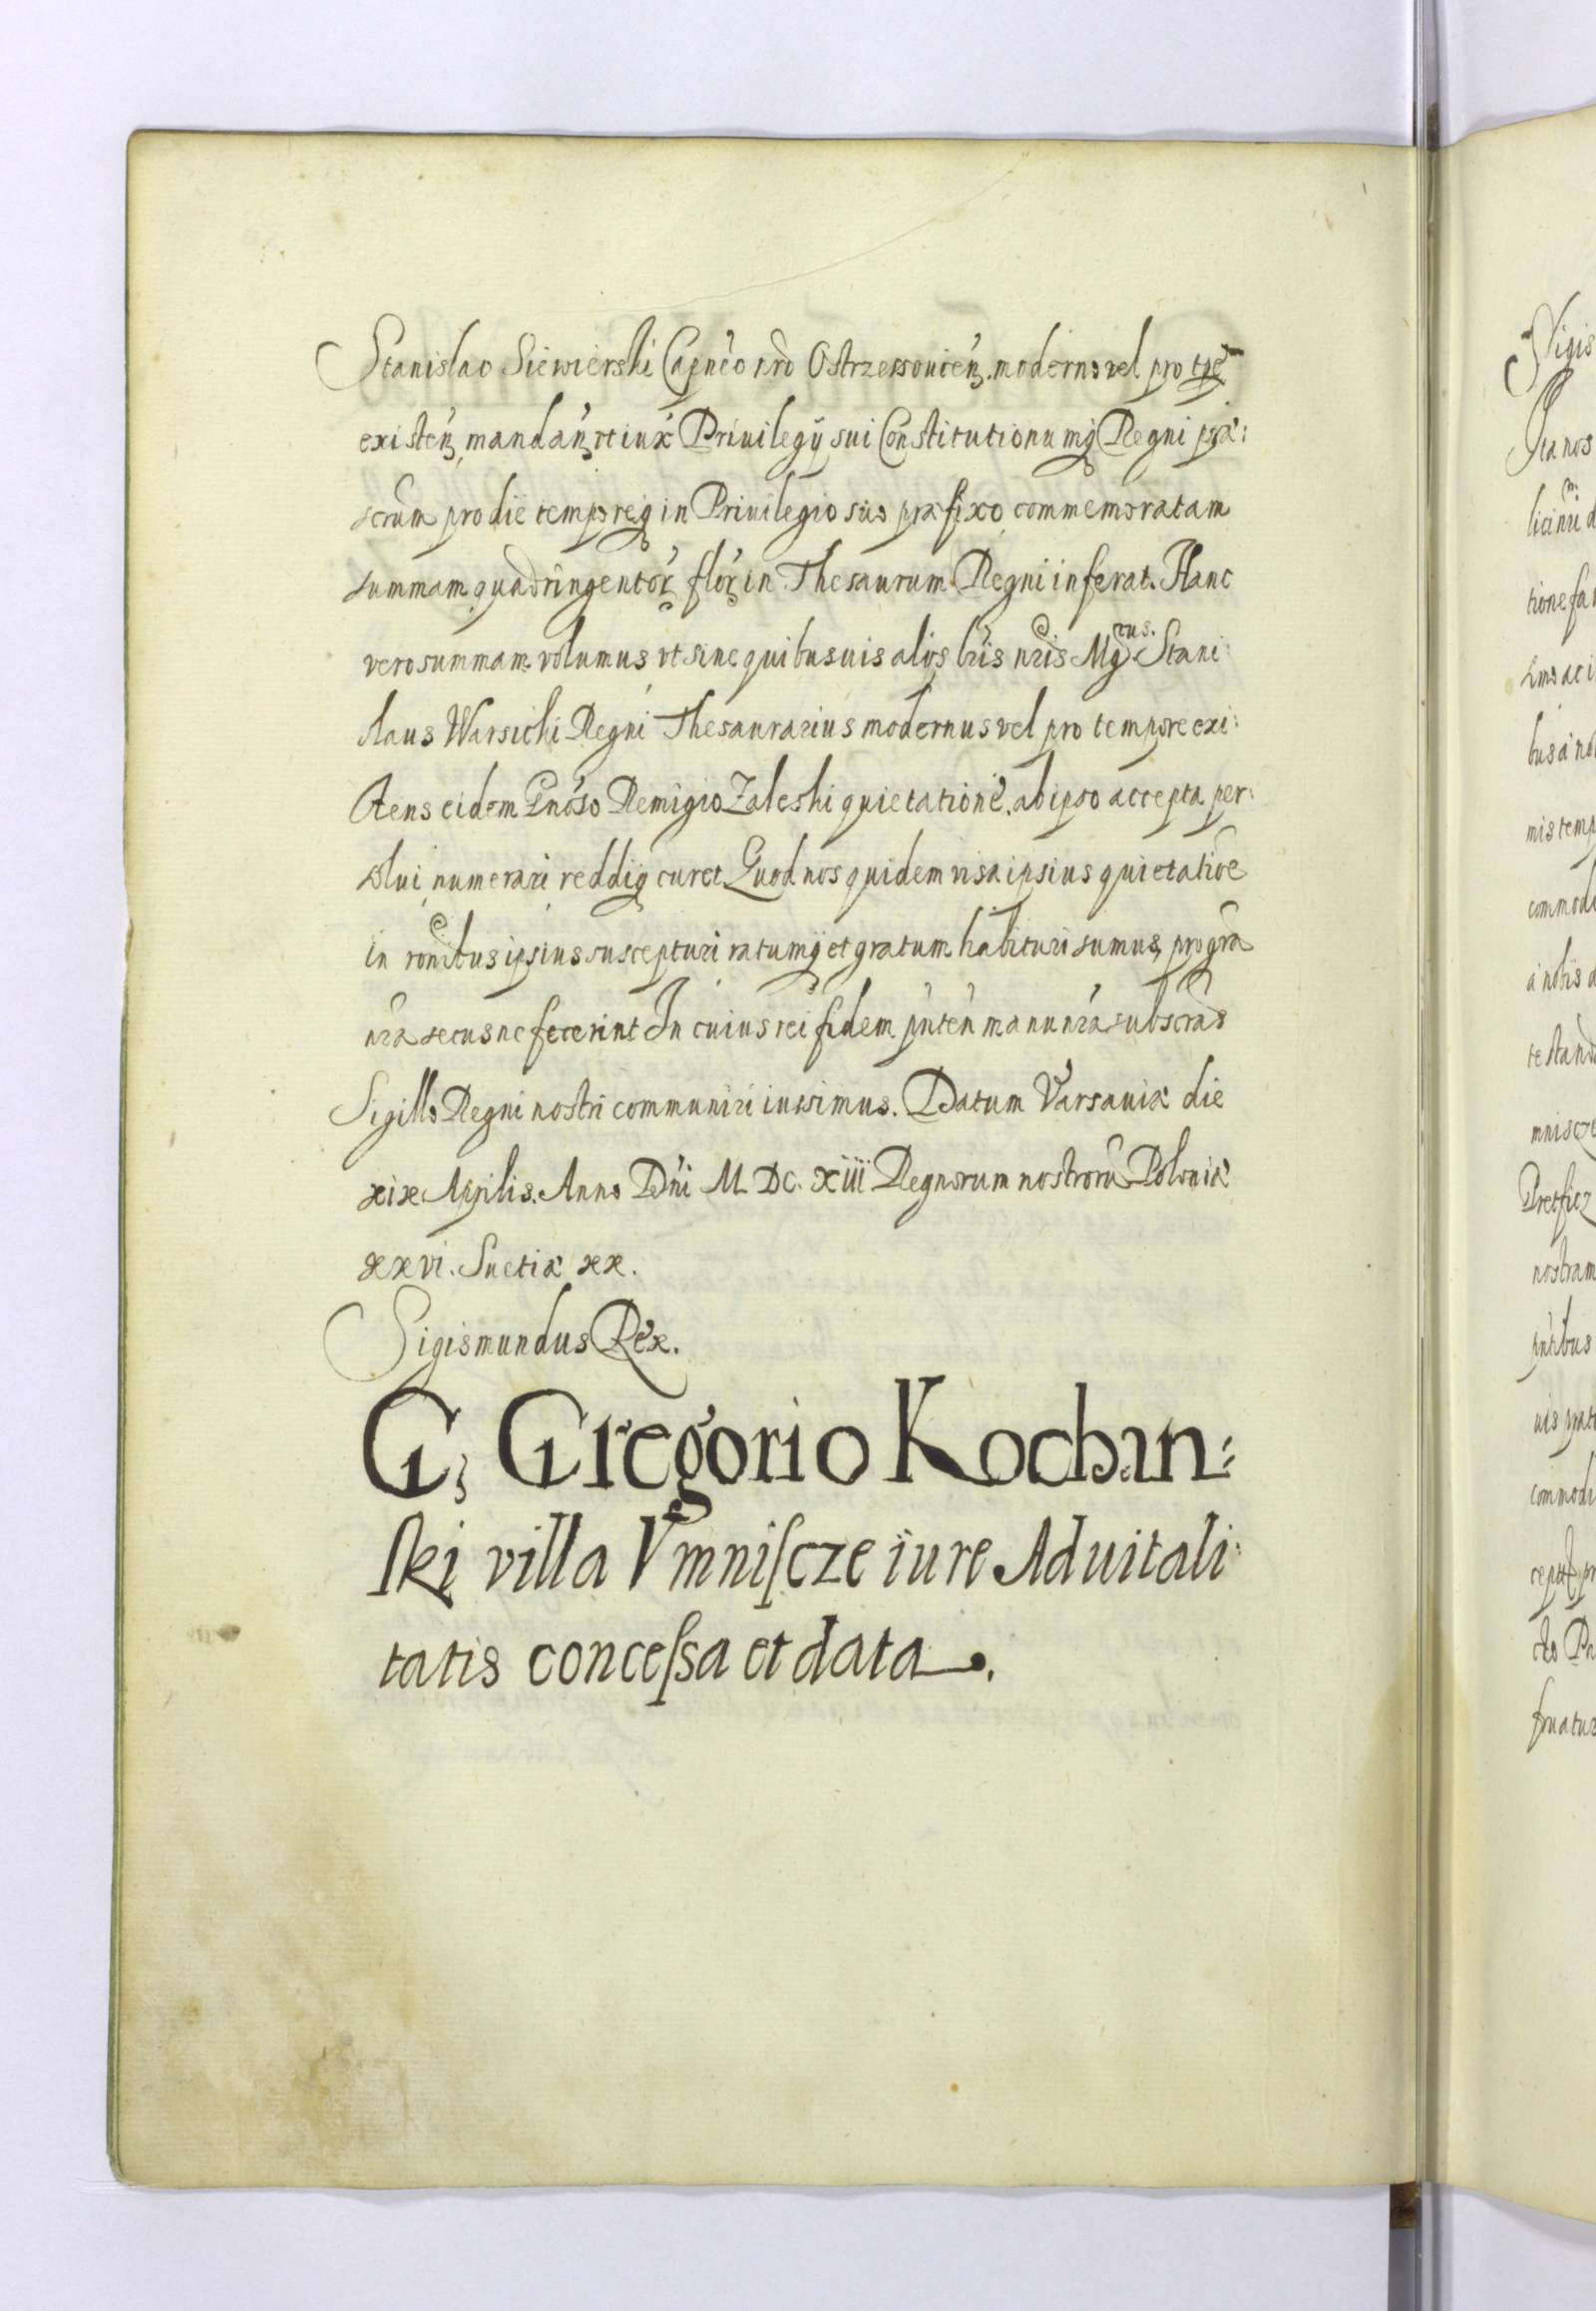 Stanislao Siewierski Capneo nro Ostrzessouien. moderno vel pro tpe
existen mandan vt iux Priuilegÿ sui Constitutionumq Regni præ:
scrum pro die temporeq in Priuilegio suo præfixo commemoratam
summam quadringentor flor in Thesaurum Regni inferat. Hanc
vero summam volumus vt sine quibusuis alÿs lris nris Mgcus. Stani:
slaus Warsicki Regni Thesaurarius modernus vel pro tempore exi:
stens eidem Gnoso Remigio Zaleski quietatione ab ipso accepta per:
solui numerari reddiq curet Quod nos quidem visa ipsius quietatioe
in ronibus ipsius suscepturi ratumq et gratum habituri sumus, pro gra
nra secus ne fecerint In cuius rei fidem pnten manu nra subscras
Sigillo Regni nostri communiri iussimus. Datum Varsauiæ die
xix Aprilis. Anno Dni M. DC. XIII Regnorum nostroru Poloniæ
xxvi. Suetiæ xx.
Sigismundus Rex.
G, Gregorio Kochan:
ſki villa Vmniſcze iure Aduitali:
tatis conceſsa et data.
Sigis
Ita nos
tione fa
bus a no
mis temp
commod
a nobis d
te stand
mnisc
nostram
pntibus
commodi
fruatur